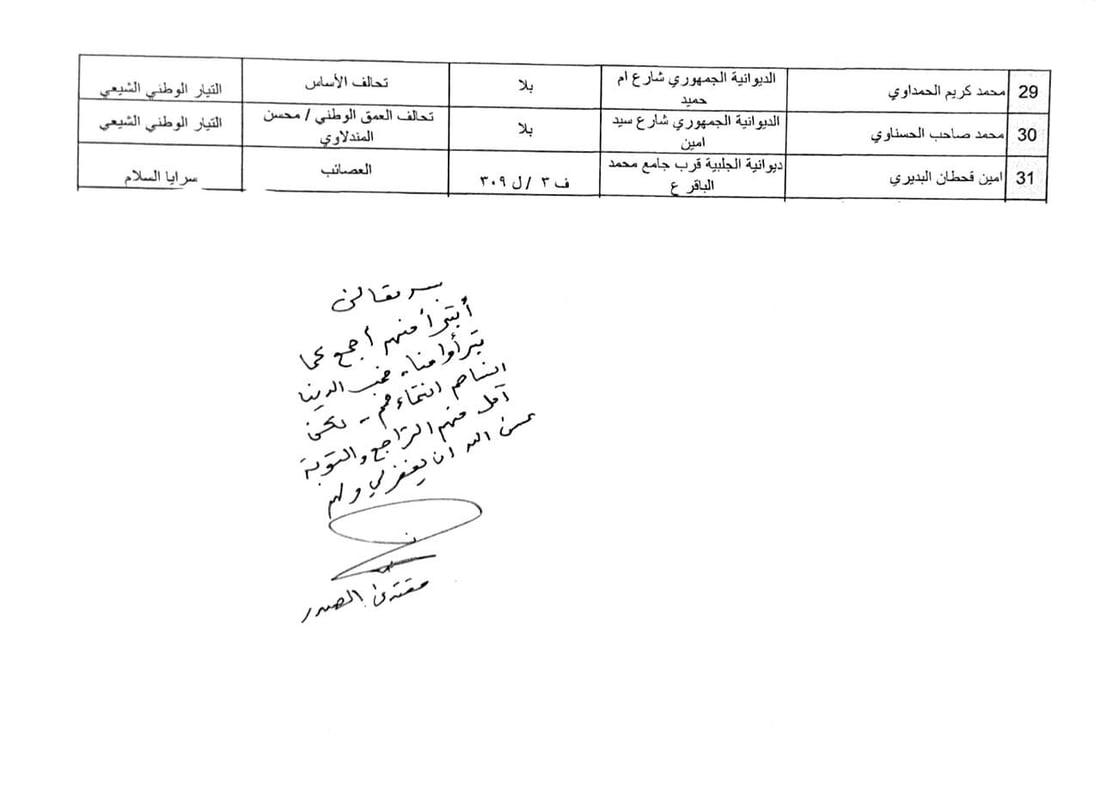 29 محمد كريم الحمداوي الديوانية الجمهوري شارع ام حميد بلا تحالف الأساس التيار الوطني الشيعي
30 محمد صاحب الحسناوي الديوانية الجمهوري شارع سيد امين بلا تحالف العمق الوطني / محسن المندلاوي التيار الوطني الشيعي
31 امين قحطان البديري ديوانية الجلبية قرب جامع محمد الباقر ع ف ٣ / ل ٣٠٩ العصائب سرايا السلام
أتبرأ منهم أجمع كما
يتبرأوا منا، فحب الدنيا
انساهم انتماءهم - لكن
آمل منهم التراجع والتوبة
عسى الله ان يغفر لي ولهم
مقتدى الصدر